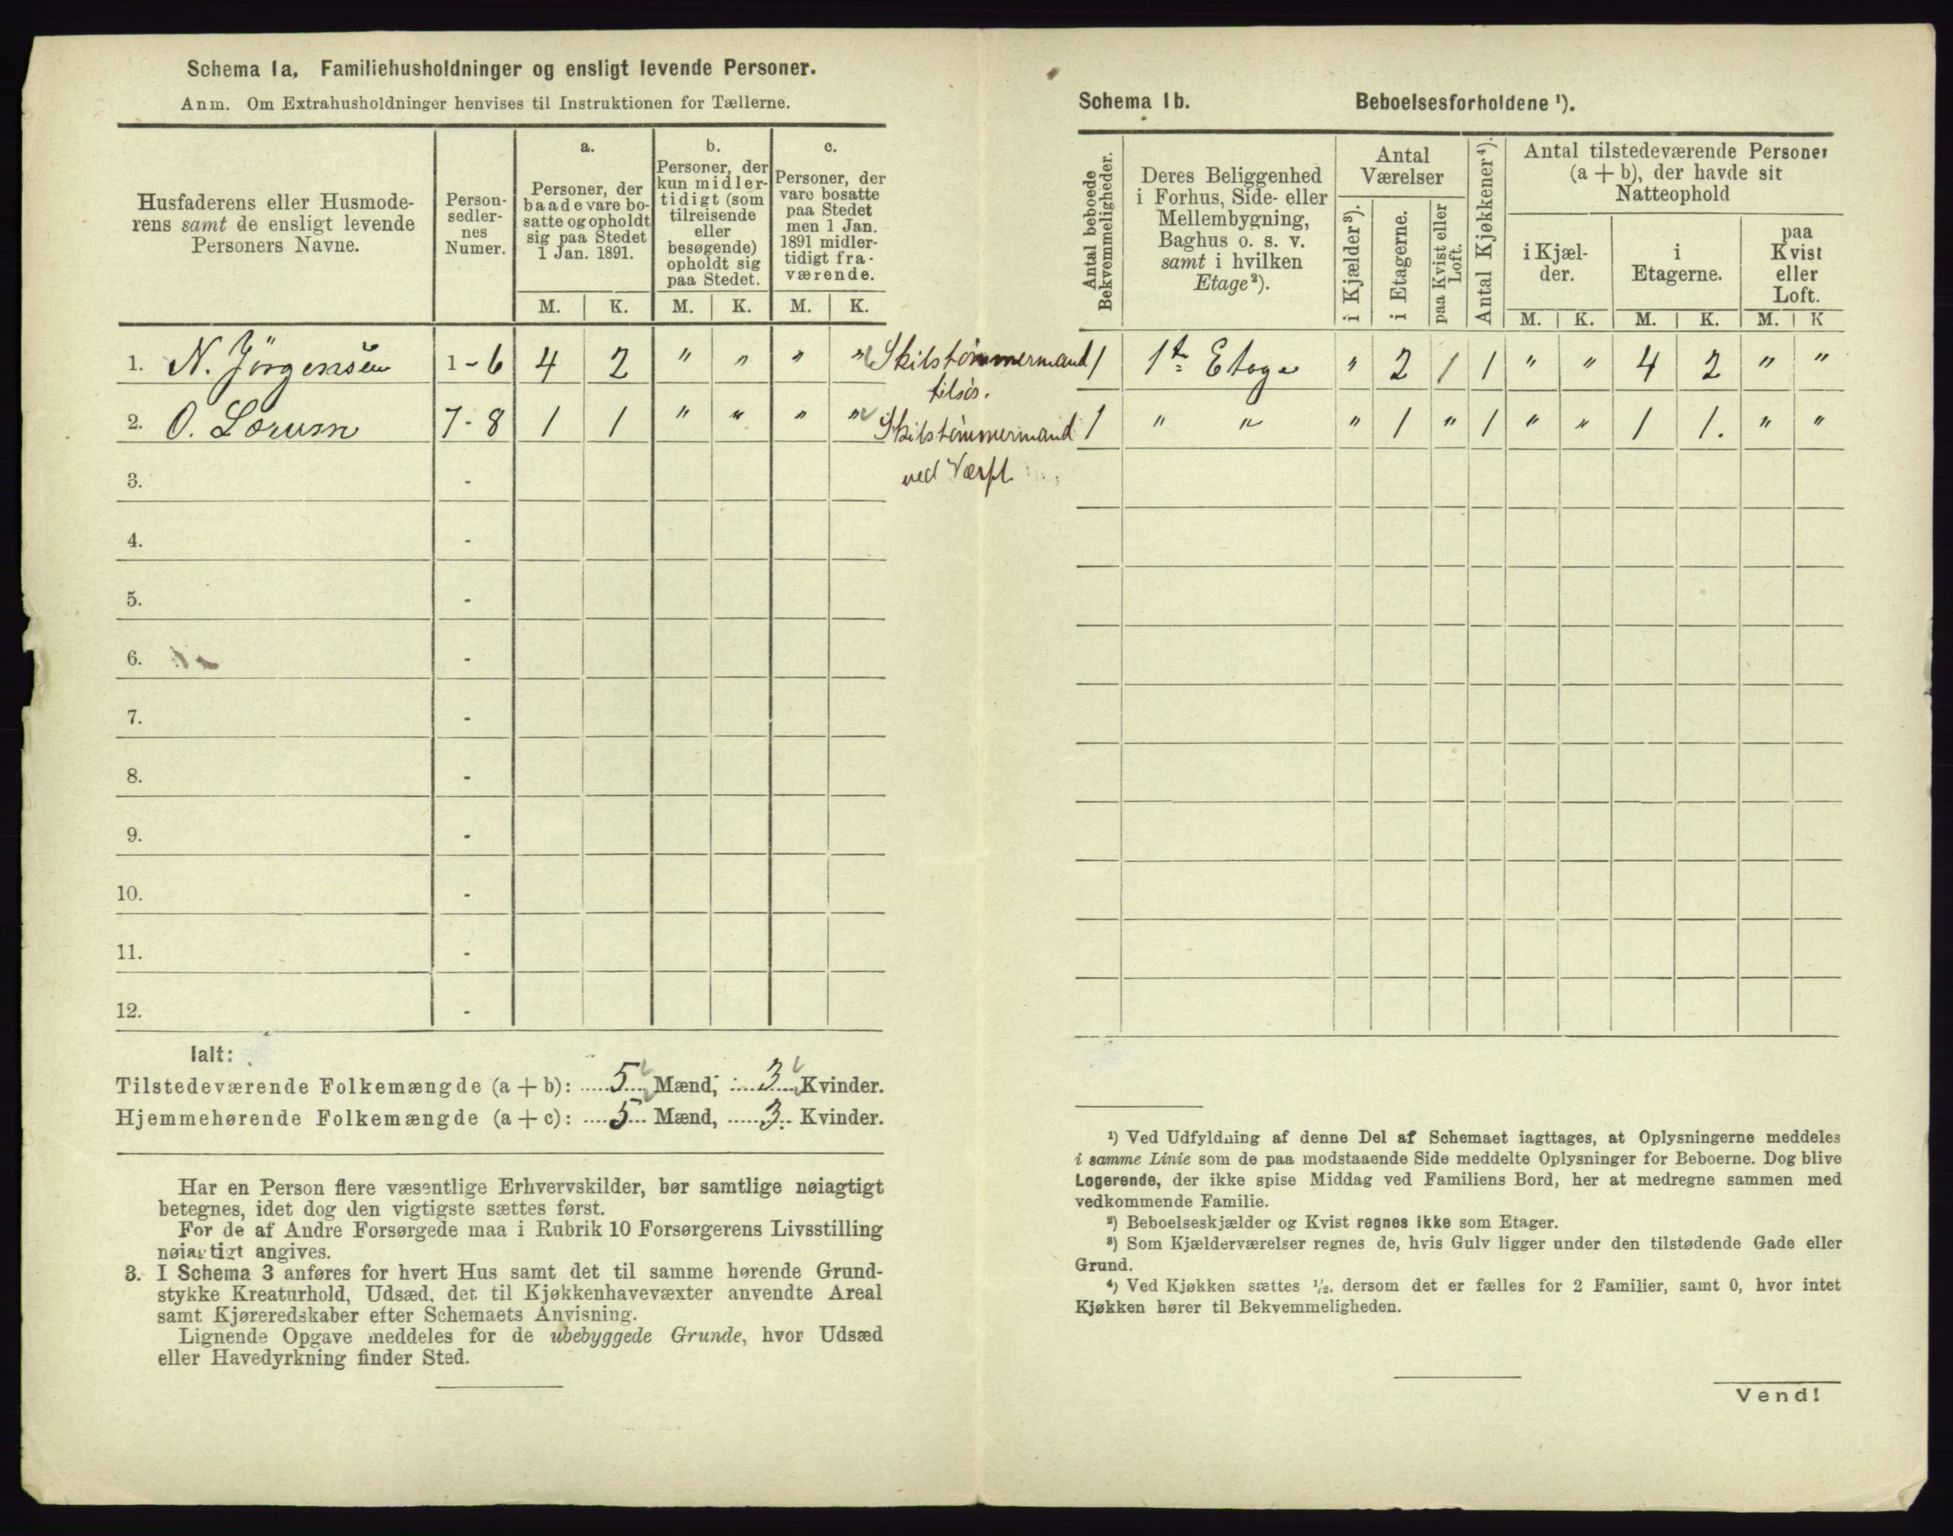 Schema 1a. Familiehusholdninger og ensligt levende Personer.
Anm. Om Extrahusholdninger henvises til Instruktionen for Tællerne.
Husfaderens eller Husmode-
rens samt de ensligt levende
Personers Navne.
Person-
sedler-
nes
Numer.
a.
Personer, der
baade vare bo-
satte og opholdt
sig paa Stedet
1 Jan. 1891.
b.
Personer, der
kun midler-
tidigt (som
tilreisende
eller
besøgende)
opholdt sig
paa Stedet.
c.
Personer, der
vare bosatte
paa Stedet
men 1 Jan.
1891 midler-
tidigt fra-
værende.
M. K. M. K. M. K.
1. N. Jörgensen 1-6 4 2 " " " " Skibstømmermand
tilsøs.
2. O. Lorum 7-8 1 1 " " " " Skibstømmermand
ved Værft
3. -
4. -
5. -
6. -
7. -
8. -
9. -
10. -
11. -
12. -
Ialt:
Tilstedeværende Folkemængde (a + b): 5 Mænd, 3 Kvinder.
Hjemmehørende Folkemængde (a + c): 5 Mænd, 3 Kvinder.
Har en Person flere væsentlige Erhvervskilder, bør samtlige nøiagtigt
betegnes, idet dog den vigtigste sættes først.
For de af Andre Forsørgede maa i Rubrik 10 Forsørgerens Livsstilling
nøiagtigt angives.
3. I Schema 3 anføres for hvert Hus samt det til samme hørende Grund-
stykke Kreaturhold, Udsæd, det til Kjøkkenhavevæxter anvendte Areal
samt Kjøreredskaber efter Schemaets Anvisning.
Lignende Opgave meddeles for de ubebyggede Grunde, hvor Udsæd
eller Havedyrkning finder Sted.
Schema 1b. Beboelsesforholdene ¹).
Antal beboede
Bekvemmeligheder.
Deres Beliggenhed
i Forhus, Side- eller
Mellembygning,
Baghus o. s. v.
samt i hvilken
Etage²).
Antal
Værelser
i Kjælder³).
i Etagerne.
paa Kvist eller
Loft.
Antal Kjøkkener⁴).
Antal tilstedeværende Personer
(a + b), der havde sit
Natteophold
i Kjæl-
der.
i
Etagerne.
paa
Kvist
eller
Loft.
M. K. M. K. M. K
1 1te Etage " 2 1 1 " " 4 2 " "
1 " " " 1 " 1 " " 1 1. " "
¹) Ved Udfyldning af denne Del af Schemaet iagttages, at Oplysningerne meddeles
i samme Linie som de paa modstaaende Side meddelte Oplysninger for Beboerne. Dog blive
Logerende, der ikke spise Middag ved Familiens Bord, her at medregne sammen med
vedkommende Familie.
²) Beboelseskjælder og Kvist regnes ikke som Etager.
³) Som Kjælderværelser regnes de, hvis Gulv ligger under den tilstødende Gade eller
Grund.
⁴) Ved Kjøkken sættes ½, dersom det er fælles for 2 Familier, samt 0, hvor intet
Kjøkken hører til Bekvemmeligheden.
Vend!